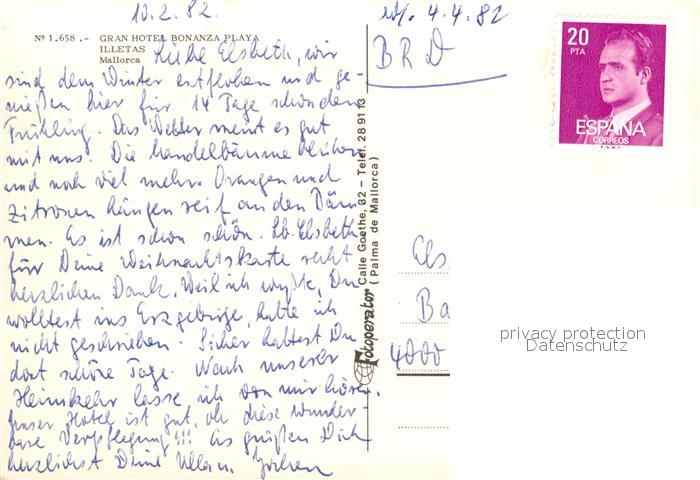 10.2.82.
Nº 1.658.- GRAN HOTEL BONANZA PLAYA
ILLETAS
Mallorca
Liebe Elsbeth, wir
sind dem Winter entflohen und ge-
nießen hier für 14 Tage schon den
Frühling. Das Wetter meint es gut
mit uns. Die Mandelbäume blühen
und noch viel mehr. Orangen und
Zitronen hängen reif an den Bäu-
men. Es ist schon schön. Lb. Elsbeth,
für Deine Weihnachtskarte recht
herzlichen Dank. Weil ich wußte, Du
wolltest ins Erzgebirge, hatte ich
nicht geschrieben. Sicher hattest Du
dort schöne Tage. Nach unserer
Heimkehr lasse ich von mir hören.
Unser Hotel ist gut, oh diese wunder-
bare Verpflegung!!! Es grüßen Dich
herzlichst Deine Ulla u. Jochen
Fotoperator Calle Goethe, 62 - Telef. 28 91 13
(Palma de Mallorca)
4.4.82
BRD
20
PTA
ESPAÑA
CORREOS
F.N.M.T.
Els
Ba
4000
privacy protection
Datenschutz